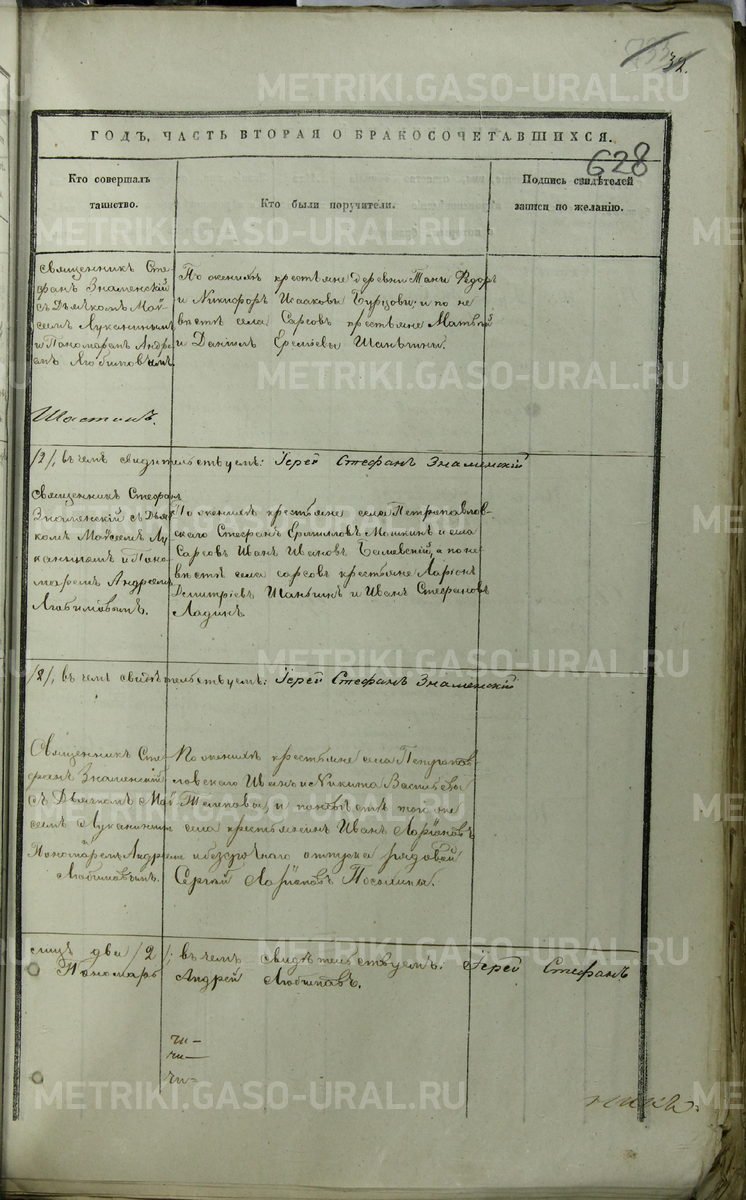 32.
ГОДЪ, ЧАСТЬ ВТОРАЯ О БРАКОСОЧЕТАВШИХСЯ.
628
Кто совершалъ
таинство.
Кто были поручители.
Подпись свидѣтелей
записи по желанію.
священникъ Сте-
фанъ Знаменскій
съ Дьячкомъ Мой-
сеемъ Луканинымъ
и Пономаремъ Андре-
емъ Любимовымъ.
По женихѣ крестьяне деревни Тани Ѳедоръ
и Никифоръ Исааковы и по не
вѣстѣ села Сарсовъ крестьяне Матвѣй
и Даніилъ
/2/, въ чемъ свидѣтельствуемъ: Іерей Стефанъ Знаменскій
священникъ Стефанъ
Знаменскій съ Дьяч
комъ Мойсеемъ Лу
канинымъ и Поно
маремъ Андреемъ
Любимовымъ.
По женихѣ крестьяне села Петропавлов-
скаго Стефанъ Ермиловъ Мошкинъ и села
Сарсовъ Иванъ Ивановъ а по не
вѣстѣ села Сарсовъ крестьяне Ларіонъ
Димитріевъ Шаньгинъ и Иванъ Стефановъ
Ладинъ.
/2/, въ чемъ свидѣтельствуемъ: Іерей Стефанъ Знаменскій
Священникъ Сте
фанъ Знаменскій
съ Дьячкомъ Мой
сеемъ Луканинымъ
Пономаремъ Андреемъ
Любимовымъ.
По женихѣ крестьяне села Петропав
ловскаго Иванъ и Никита Васильевы
и по невѣстѣ того же
села крестьянинъ Иванъ Ларіоновъ
и безсрочнаго отпуска рядовой
Сергій Ларіоновъ
сицъ два /2/; въ чемъ свидѣтельствуемъ: Іерей Стефанъ
Пономарь Андрей Любимовъ.
METRIKI.GASO-URAL.RU